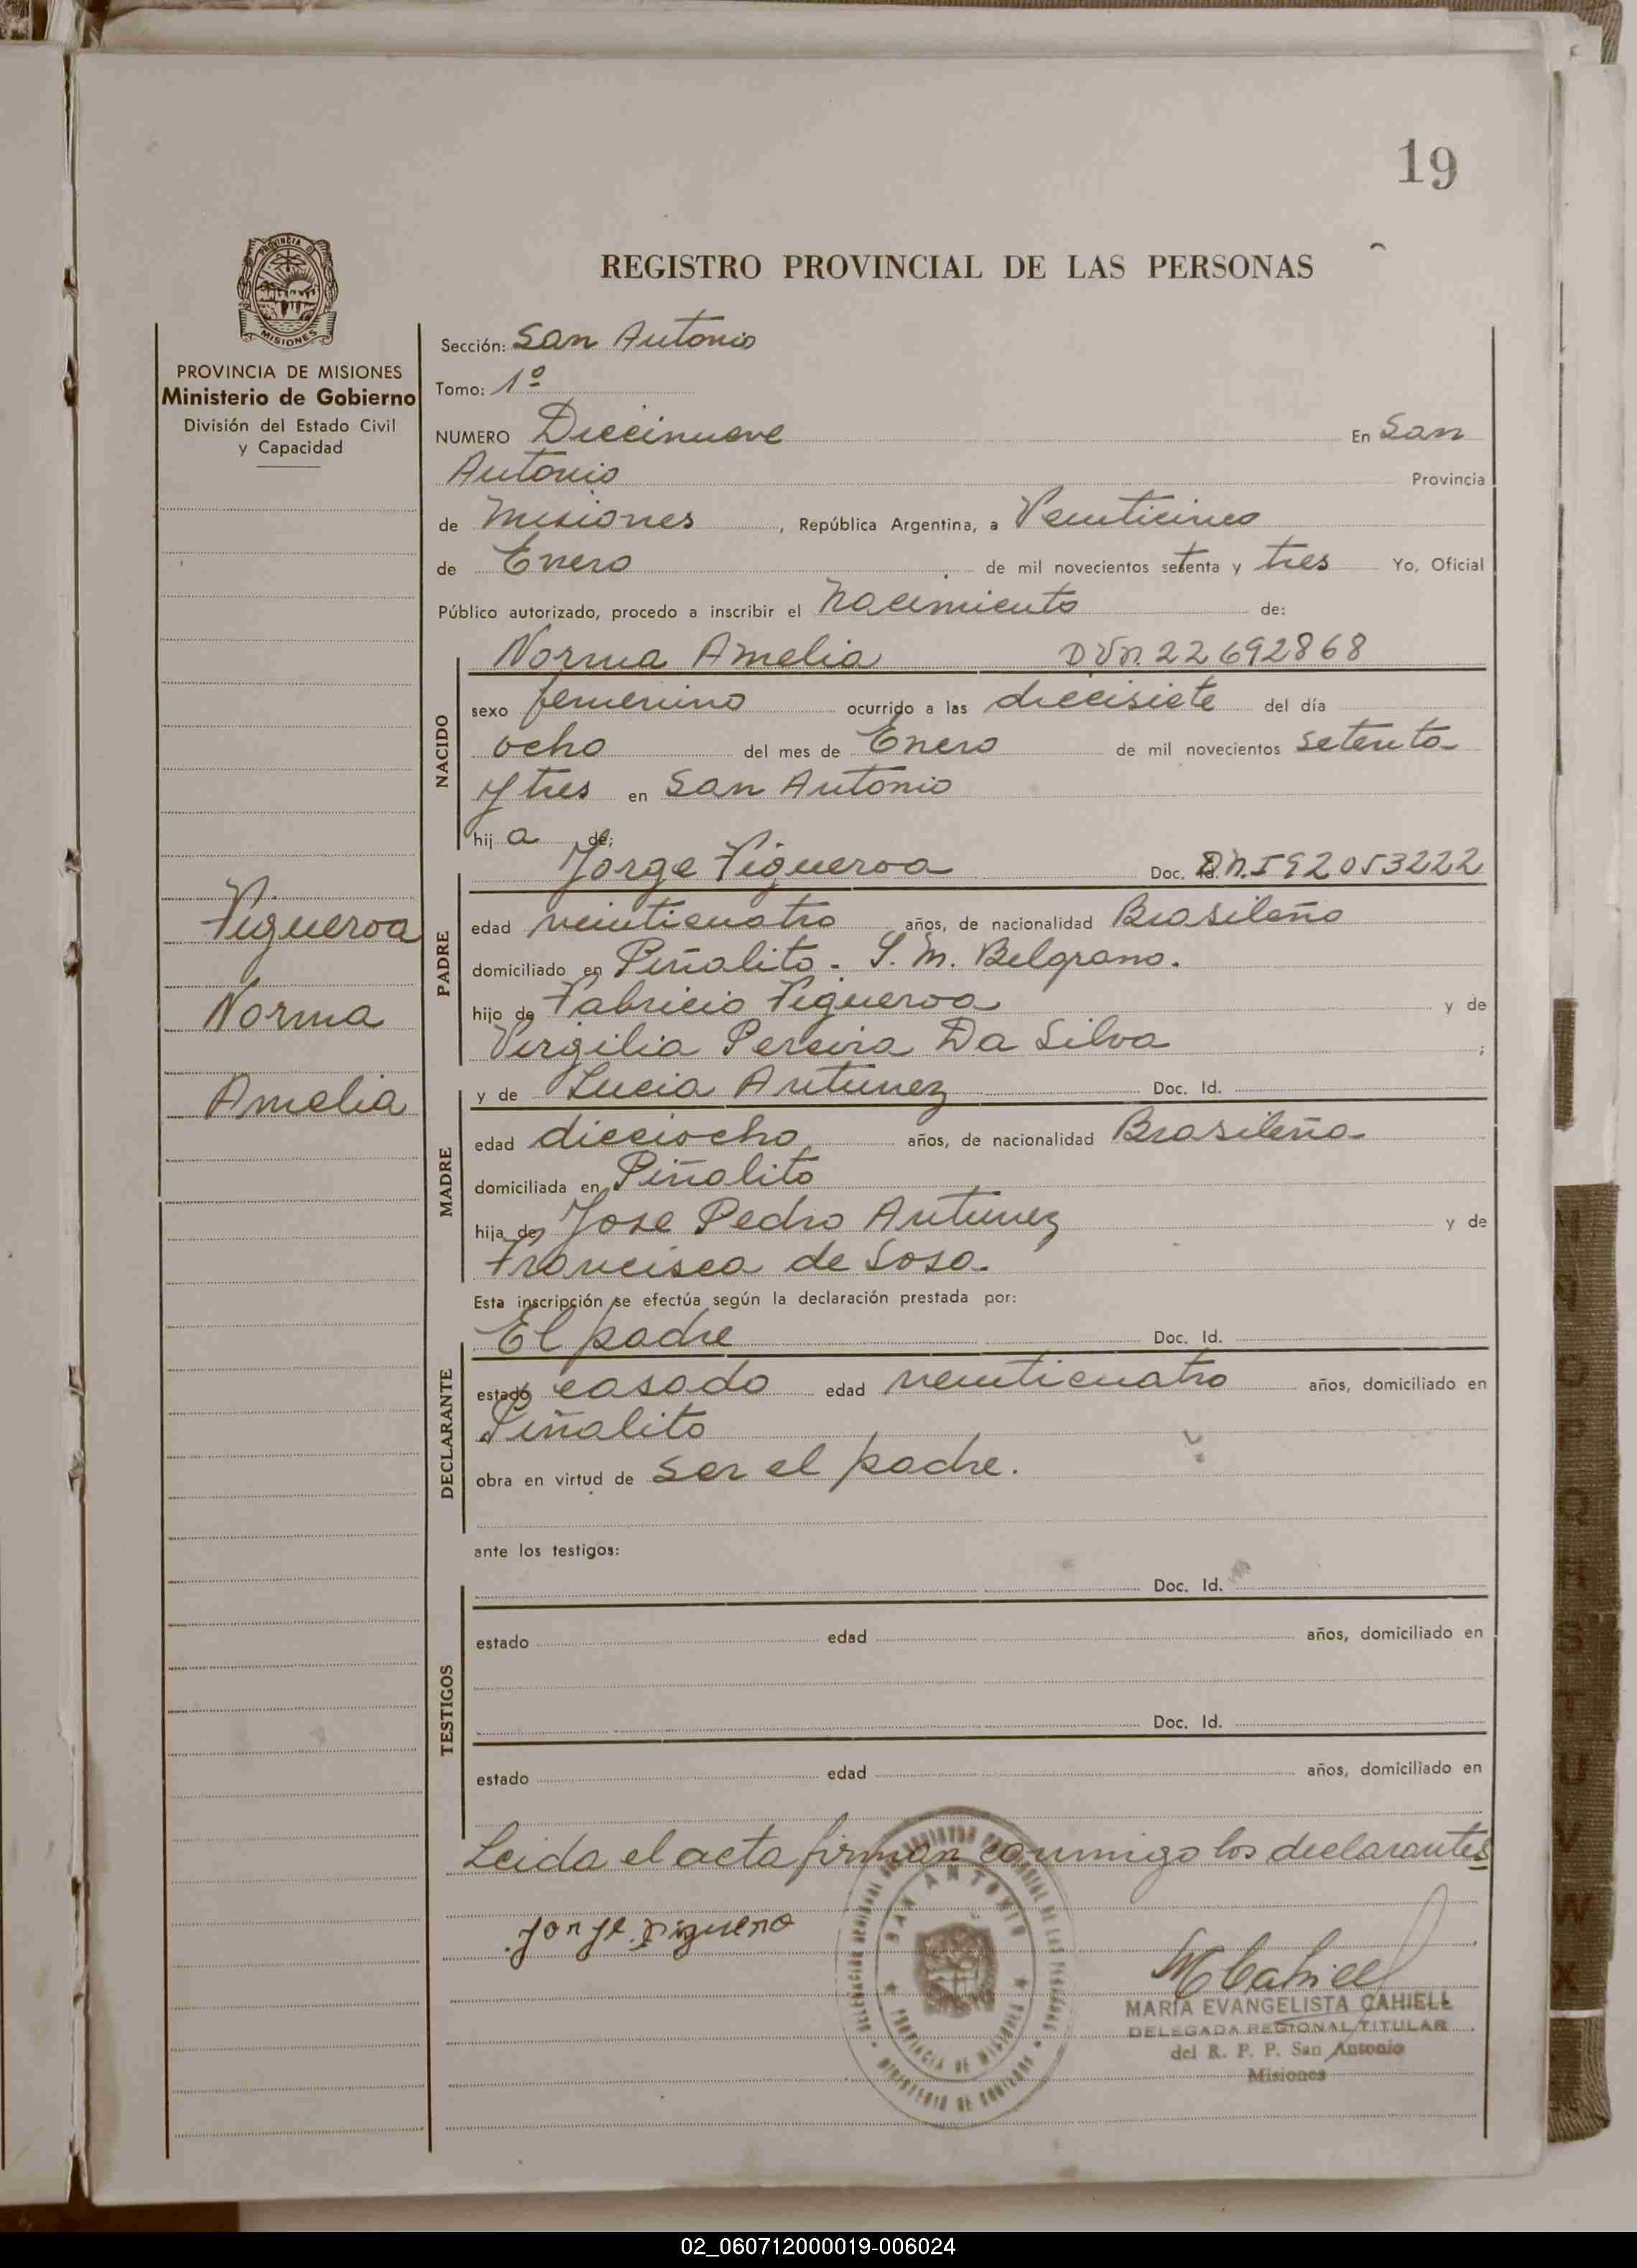 19
PROVINCIA DE
MISIONES
REGISTRO PROVINCIAL DE LAS PERSONAS
PROVINCIA DE MISIONES
Ministerio de Gobierno
División del Estado Civil
y Capacidad
Figueroa
Norma
Amelia
Sección: San Antonio
Tomo: 1º
NUMERO Diecinueve En San
Antonio Provincia
de Misiones, República Argentina, a Veinticinco
de Enero de mil novecientos setenta y tres Yo, Oficial
Público autorizado, procedo a inscribir el Nacimiento de:
NACIDO
Norma Amelia 22692868
sexo femenino ocurrido a las diecisiete del día
ocho del mes de Enero de mil novecientos setenta
y tres en San Antonio
hija de:
PADRE
Jorge Figueroa Doc.
edad veinticuatro años, de nacionalidad Brasileña
domiciliado en Piñalito - S. M. Belgrano.
hijo de Fabricio Figueroa y de
Virgilia Pereira Da Silva;
MADRE
y de Lucia Antunez Doc. Id.
edad dieciocho años, de nacionalidad Brasileña
domiciliada en Piñalito
hija de Jose Pedro Antunez y de
Francisca de Sosa.
Esta inscripción se efectúa según la declaración prestada por:
DECLARANTE
El padre Doc. Id.
estado casado edad veinticuatro años, domiciliado en
Piñalito
obra en virtud de ser el padre.
ante los testigos:
TESTIGOS
Doc. Id.
estado edad años, domiciliado en
Doc. Id.
estado edad años, domiciliado en
Leida el acta firman conmigo los declarantes
SAN ANTONIO
PROVINCIA DE MISIONES
MINISTERIO DE GOBIERNO
MCahiell
MARIA EVANGELISTA CAHIELL
DELEGADA REGIONAL TITULAR
del R. P. P. San Antonio
Misiones
02_060712000019-006024